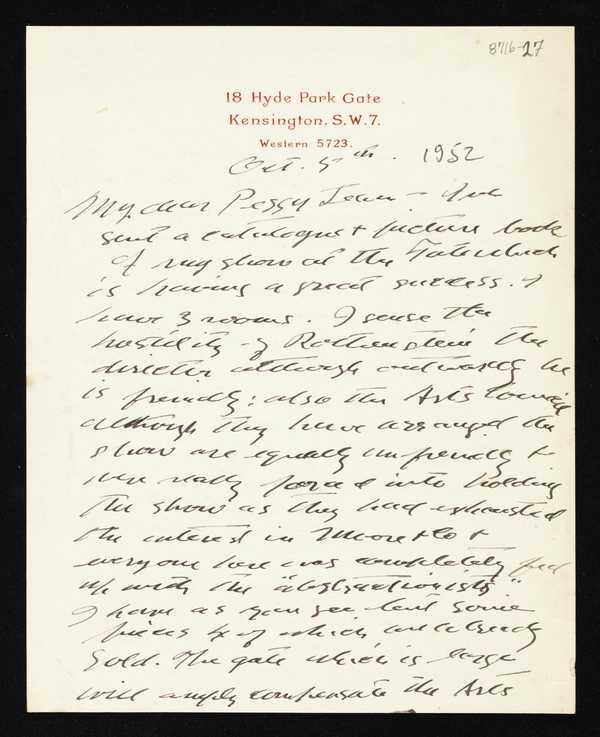 8716-27
18 Hyde Park Gate
Kensington. S.W.7.
Western 5723.
Oct. 5th. 1952
My dear Peggy Jean - I've
sent a catalogue & picture book
of my show at the Tate which
is having a great success. I
have 3 rooms. I sense the
hostility of Rothenstein the
director although outwardly he
is friendly; also the Arts Council
although they have arranged the
show are equally unfriendly &
were really forced into holding
the show as they had exhausted
the interest in Moore & Co &
everyone here was completely fed
up with the "abstractionists"
I have as you see lent some
pieces 4 of which are already
sold. The gate which is large
will amply compensate the Arts